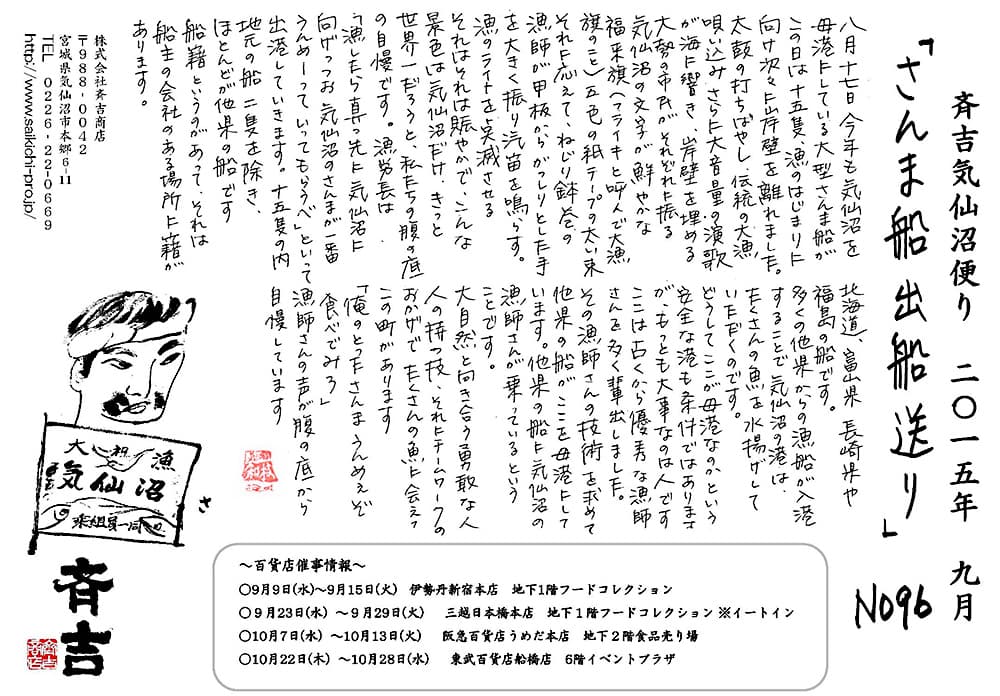 斉吉気仙沼便り 二〇一五年 九月
「さんま船出船送り」
No96
八月十七日今年も気仙沼を
母港としている大型さんま船が
この日は十五隻、漁のはじまりに
向け次々と岸壁を離れました。
太鼓の打ちばやし、伝統の大漁
唄い込み さらに大音量の演歌
が海に響き、岸壁を埋める
大勢の市民がそれぞれに振る
気仙沼の文字が鮮やかな
福来旗(フライキと呼んで大漁
旗のこと)五色の紙テープの太い束
それに応えて、ねじり鉢巻の
漁師が甲板からがっしりとした手
を大きく振り汽笛を鳴らす。
漁のライトを点滅させる
それはそれは賑やかで、こんな
景色は気仙沼だけ、きっと
世界一だろうと、私たちの腹の底
の自慢です。漁労長は
「漁したら真っ先に気仙沼に
向げっつお 気仙沼のさんまが一番
うんめーっていってもらうべ」といって
出港していきます。十五隻の内
地元の船二隻を除き、
ほとんどが他県の船です
船籍というのがあって、それは
船主の会社のある場所に籍が
あります。
北海道、富山県、長崎県や
福島の船です。
多くの他県からの漁船が入港
することで気仙沼の港は、
たくさんの魚を水揚げして
いただくのです。
どうしてここが母港なのかという
安全な港も条件ではあります
が、もっとも大事なのは人です
ここは古くから優秀な漁師
さんを多く輩出しました。
その漁師さんの技術を求めて
他県の船がここを母港として
います。他県の船に気仙沼の
漁師さんが乗っているという
ことです。
大自然と向き合う勇敢な人
人の持つ技、それにチームワークの
おかげで、たくさんの魚に会えて
この町があります
「俺のとったさんま うんめぇぞ
食べでみろ」
漁師さんの声が腹の底から
自慢しています
株式会社斉吉商店
〒988-0042
宮城県気仙沼市本郷6-11
TEL 0226-22-0669
http://www.saikichi-pro.jp/
大漁
祝
気仙沼
乗組員一同
さ
斉吉
～百貨店催事情報～
〇9月9日(水)～9月15日(火) 伊勢丹新宿本店 地下1階フードコレクション
〇9月23日(水) ～9月29日(火) 三越日本橋本店 地下1階フードコレクション ※イートイン
〇10月7日(水) ～10月13日(火) 阪急百貨店うめだ本店 地下2階食品売り場
〇10月22日(木) ～10月28日(水) 東武百貨店船橋店 6階イベントプラザ